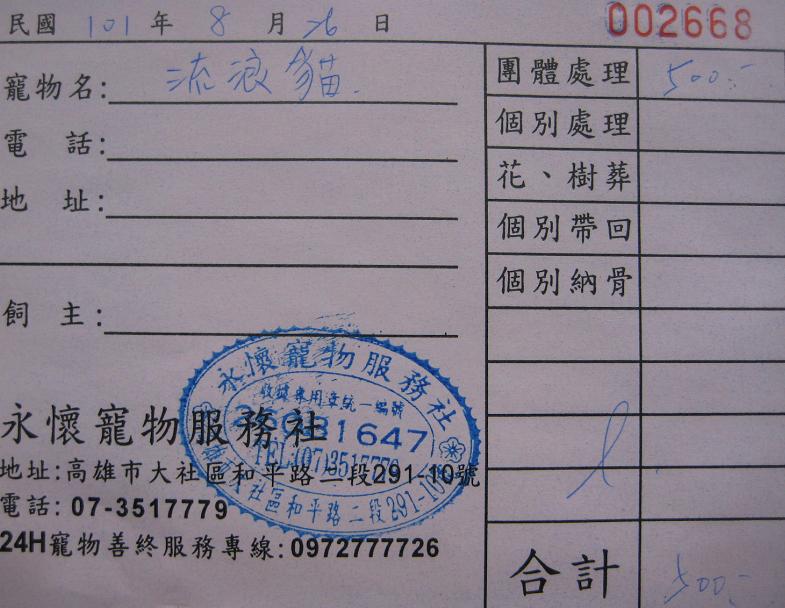 民國 101 年 8 月 26 日
002668
寵物名: 流浪貓.
電 話:
地 址:
飼 主:
團體處理 500.-
個別處理
花、樹葬
個別帶回
個別納骨
合計 500.-
永懷寵物服務社
地址:高雄市大社區和平路二段291-10號
電話: 07-3517779
24H寵物善終服務專線:0972777726
永懷寵物服務社
收據專用章統一編號
1647
TEL:(07)3517779
大社區和平路二段291-10號